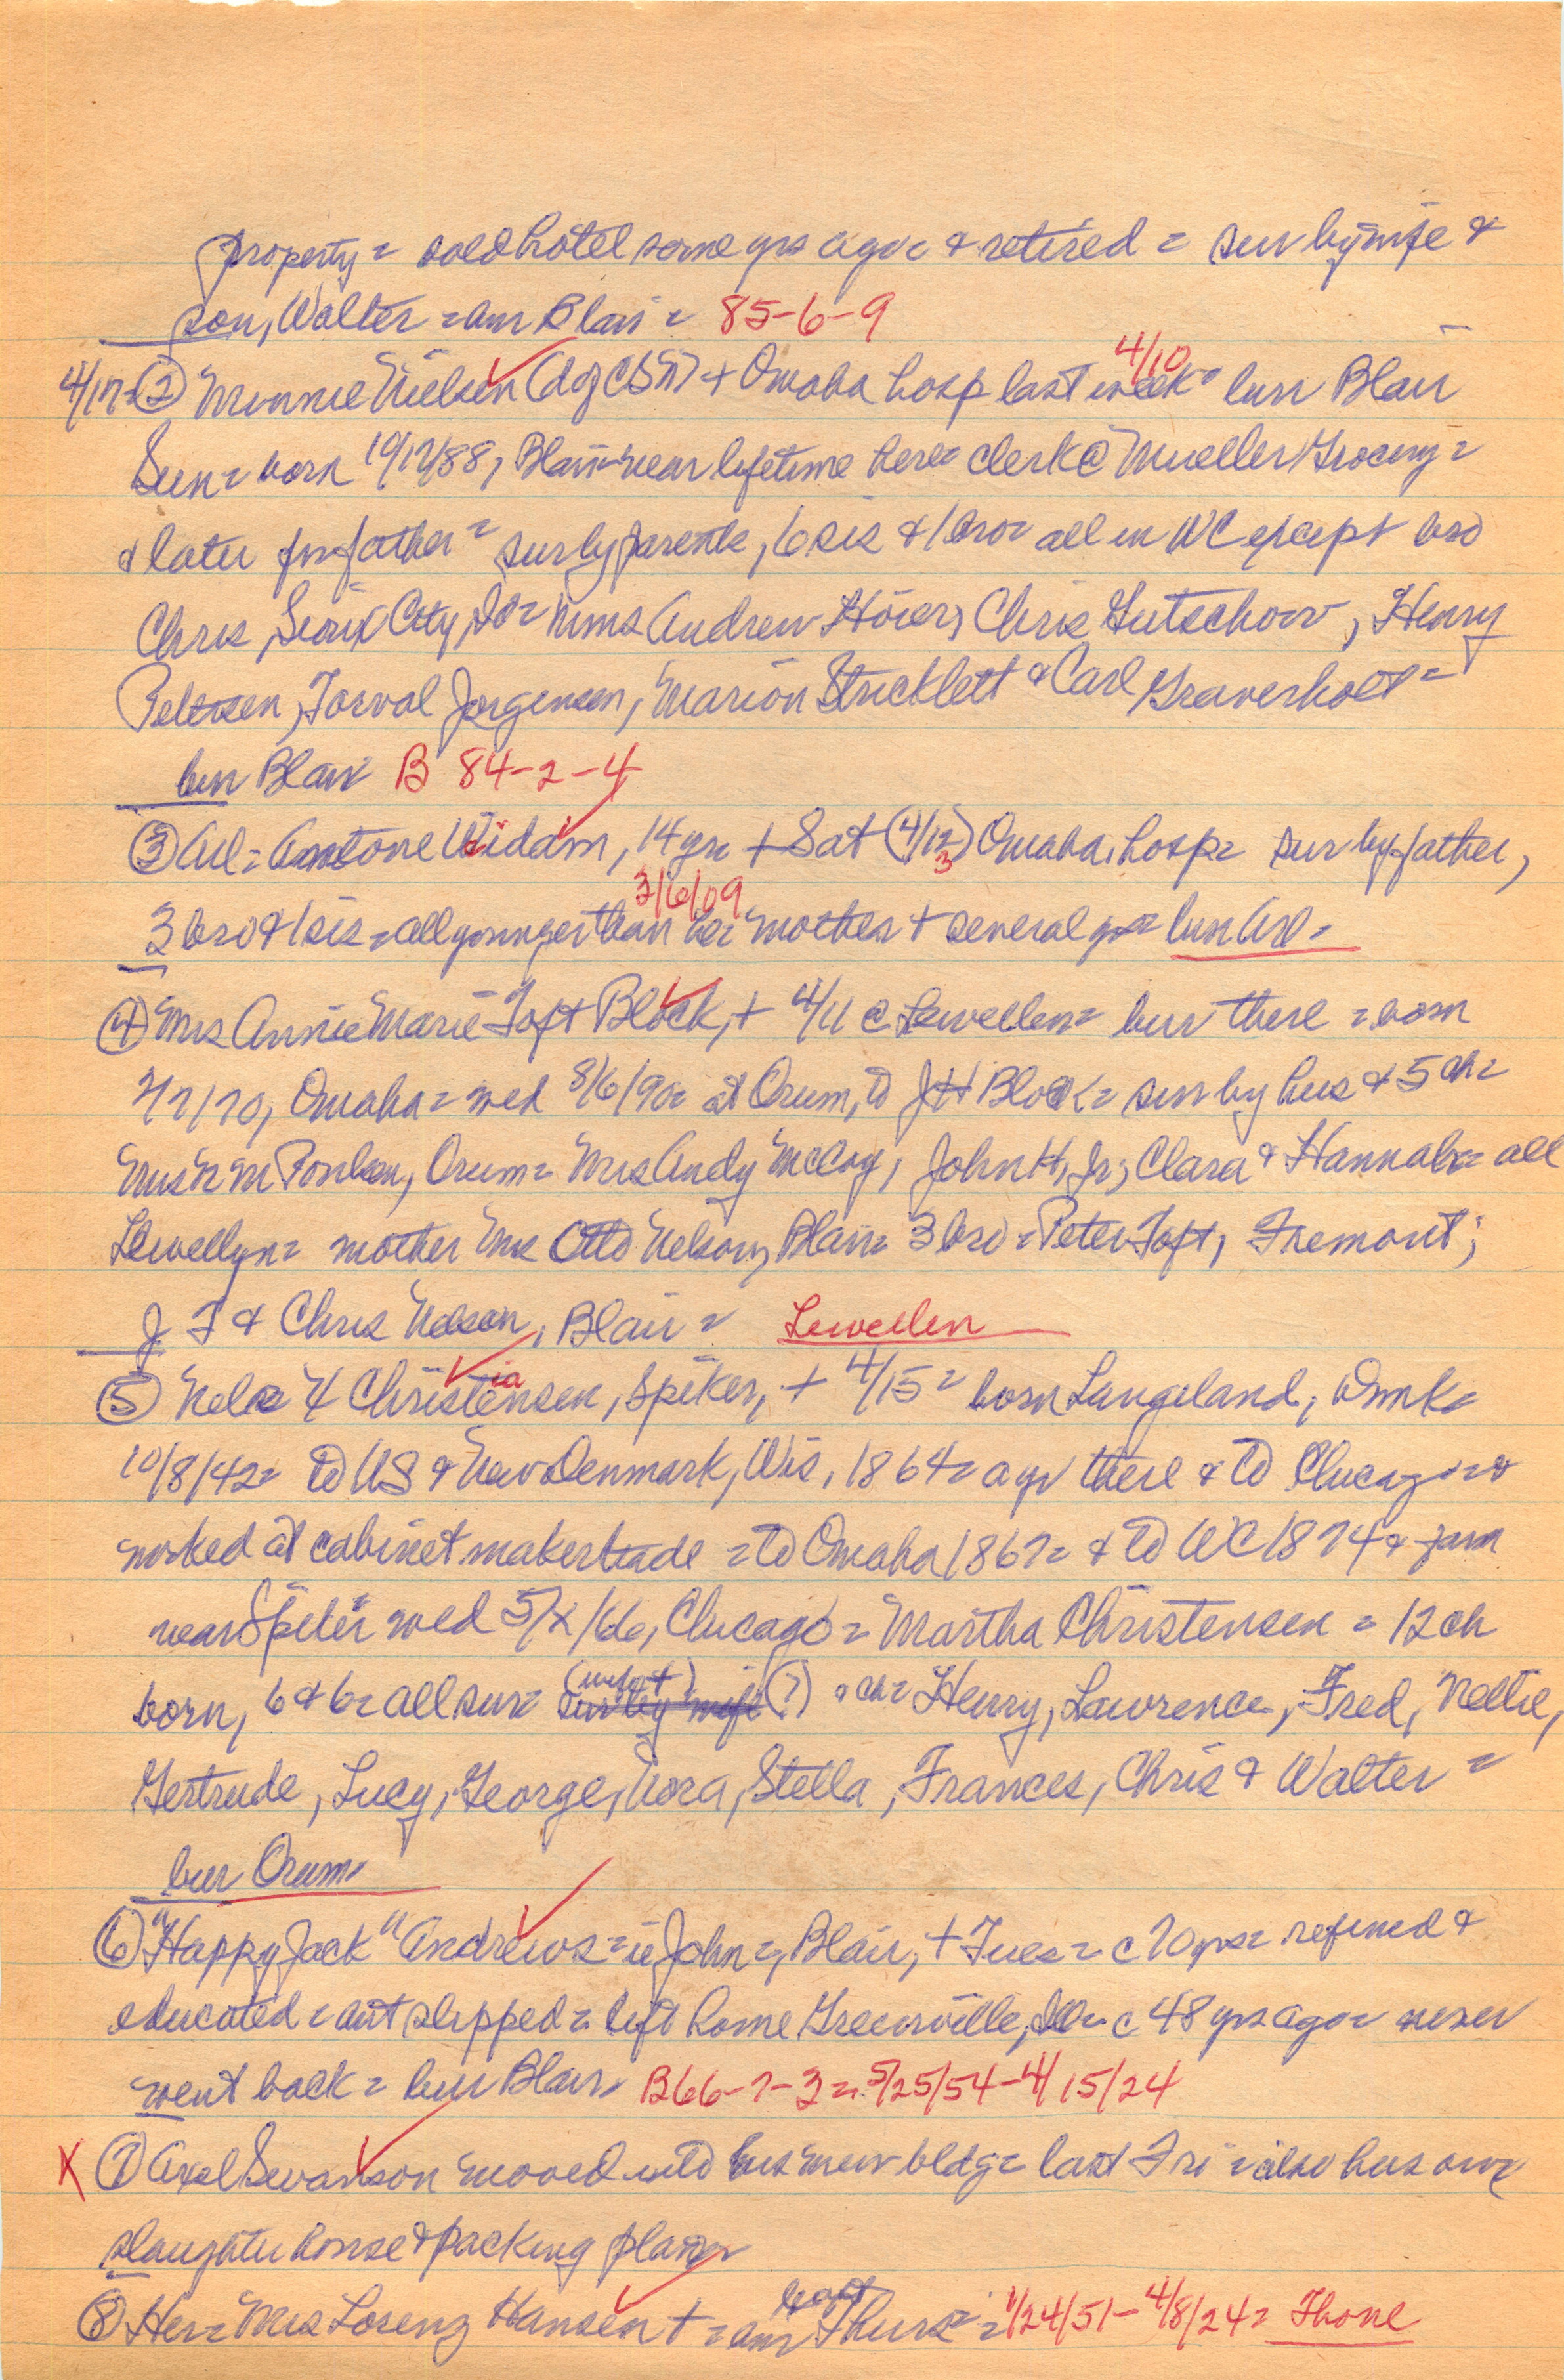 property = sold hotel some yrs ago = & retired = sur by wife &
son, Walter = bur Blair = 85-6-9
4/17 = ② Minnie Nielsen (d of C S N) + Omaha hosp last week = bur Blair
4/10
Sun = born 10/12/88, Blair = near lifetime here = clerk @ Mueller Grocery =
& later for father = sur by parents, 6 sis & 1 bro = all in WC except bro
Chris, Sioux City, Ia = Mmes Andrew Hoier, Chris Gutschow, Henry
Petersen, Torval Jorgensen, Marion Stricklett & Carl Graverholt =
bur Blair B 84-2-4
③ Arl = Antone Widdm, 14 yrs + Sat (4/12) Omaha hosp = sur by father,
3
3/6/09
3 bro & 1 sis = all younger than he = mother + several yrs = bur Arl =
④ Mrs Annie Marie Toft Block, + 4/11 @ Lewellen = bur there = born
2/7/70, Omaha = wed 8/6/90 = at Orum, to J H Block = sur by hus & 5 ch =
Mrs N M Poulsen, Orum = Mrs Andy McCoy, John H, Jr, Clara & Hannah = all
Lewellyn = mother Mrs Otto Nelson, Blair = 3 bro = Peter Toft, Fremont;
J T & Chris Nelson, Blair = Lewellen
⑤ Nels H Christensen, Spiker, + 4/15 = born Langeland, Dmk =
ia
10/8/42 = to US & New Denmark, Wis, 1864 = a yr there & to Chicago = &
worked at cabinet maker trade = to Omaha 1867 = & to WC 1874 & farm
near Spiker wed 5/x/66, Chicago = Martha Christensen = 12 ch
born, 6 & 6 = all sur = (wife +) sur by wife (?) & ch = Henry, Lawrence, Fred, Nellie,
Gertrude, Lucy, George, Nora, Stella, Frances, Chris & Walter =
bur Orum =
⑥ "Happy Jack" Andrews = ie John =, Blair, + Tues = c 70 yrs = refined &
educated = but slipped = left home Greenville, Ill = c 48 yrs ago = never
went back = bur Blair = B66-7-3 = 5/25/54-4/15/24
X ⑦ Axel Swanson moved into his new bldg = last Fri = also has own
slaughter house & packing plant
⑧ Her = Mrs Lorenz Hansen + = bur Thurs = 1/24/51-4/8/24 = Thone